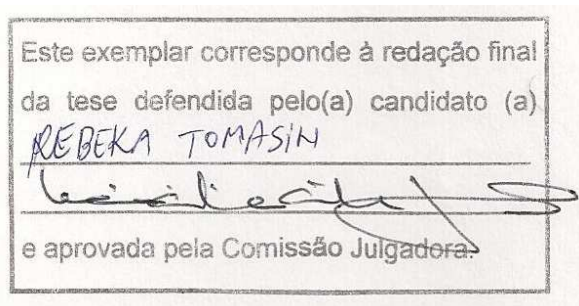 Este exemplar corresponde à redação final
da tese defendida pelo(a) candidato (a)
REBEKA TOMASIN
e aprovada pela Comissão Julgadora.